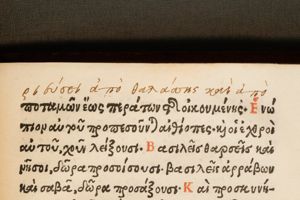 ἀπὸ θαλάσσης καὶ ἀπὸ
ποταμῶν ἕως περάτων τῆς οἰκουμένης. Ἐνώ
πιον αὐτοῦ προπεσοῦνται αἰθίοπες. καὶ οἱ ἐχθροὶ
αὐτοῦ, χοῦν λείξουσι. Βασιλεῖς θαρσεῖς καὶ
νῆσοι, δῶρα προσοίσουσι. βασιλεῖς ἀρράβων
καὶ σαβᾶ, δῶρα προσάξουσι. Καὶ προσκυνή-